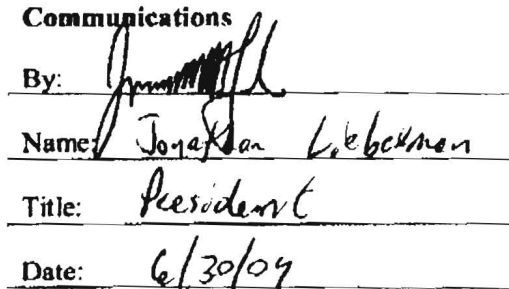 Communications
By:
Name: Jonathan Lieberman
Title: President
Date: 6/30/04